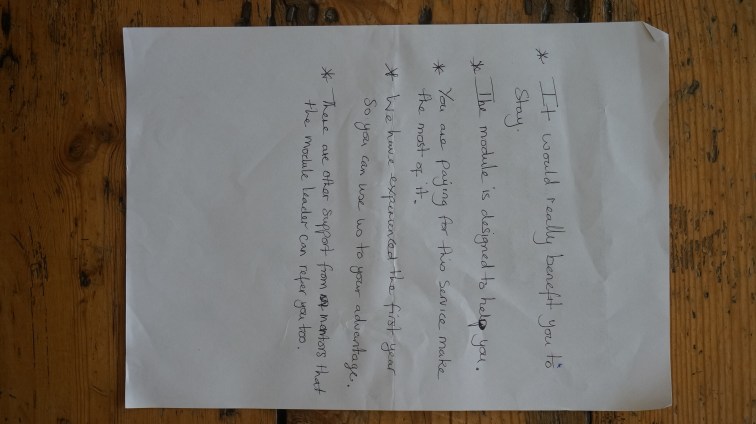 * It would really benefit you to
Stay
* The module is designed to help you.
* You are paying for this service make
the most of it.
* We have experienced the first year
So you can use us to your advantage.
* There are other support from mentors that
the module leader can refer you too.